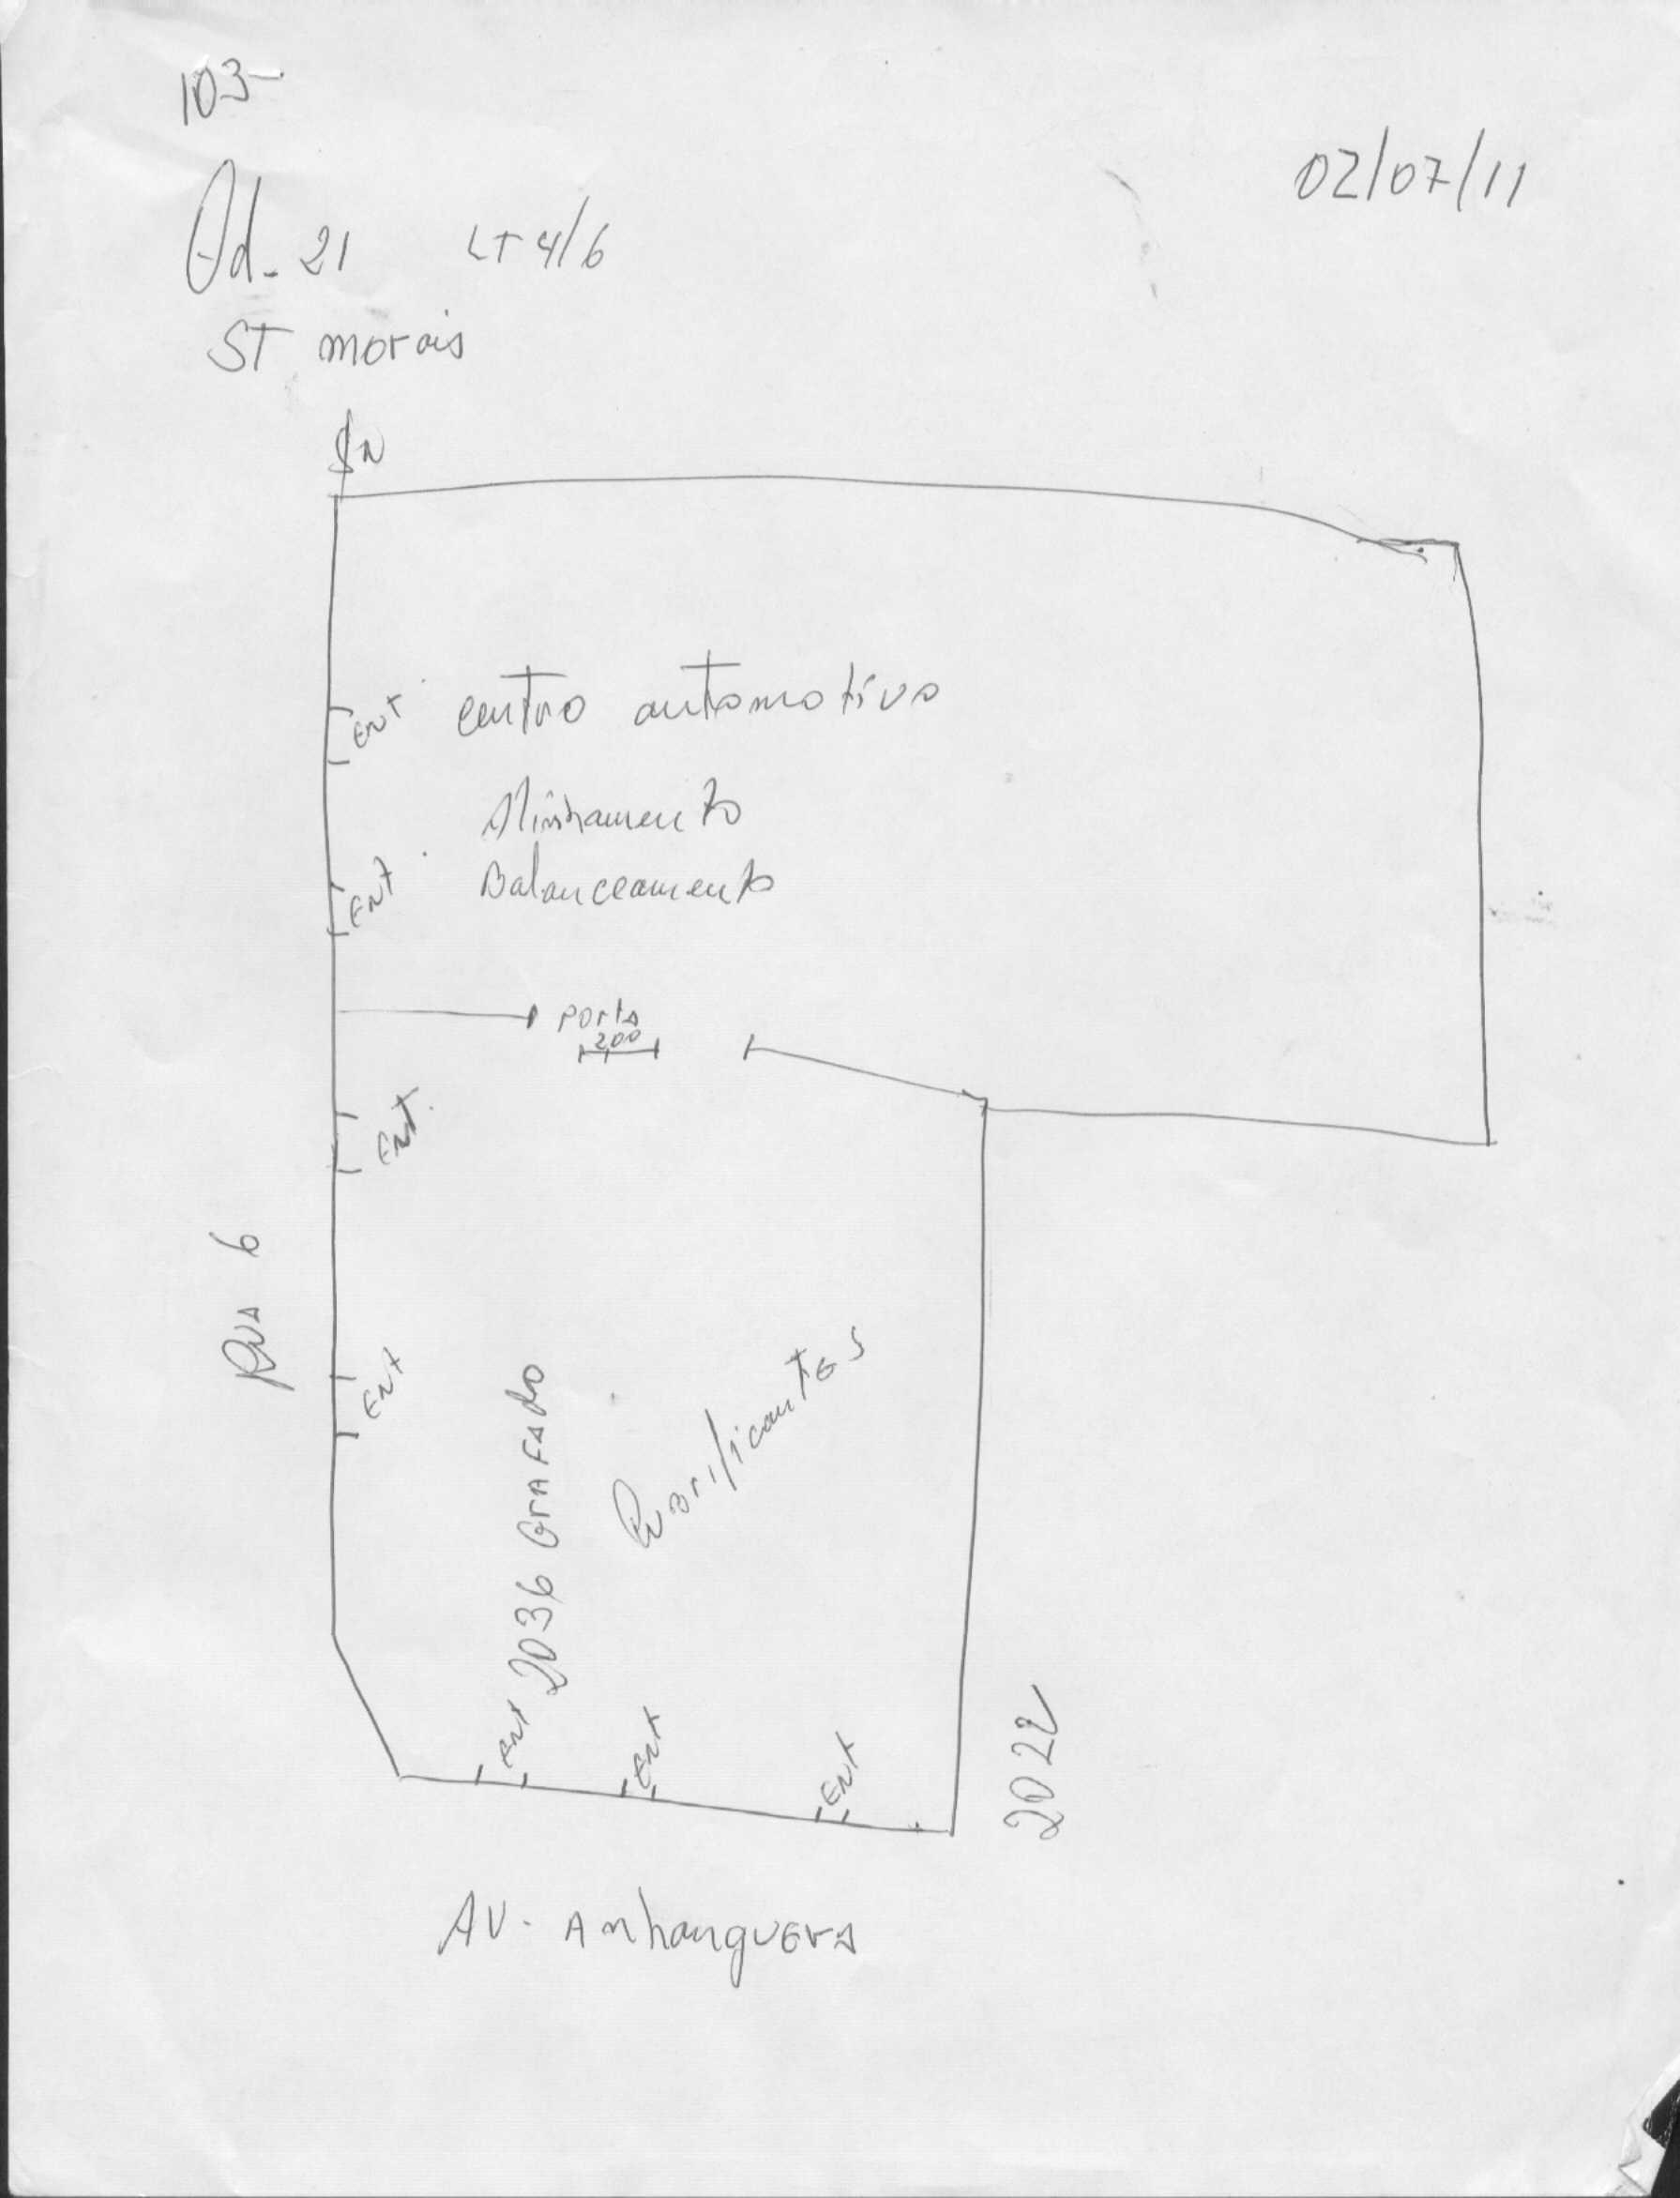 103-
02/07/11
Qd. 21 LT 4/6
ST morais
SN
Ent centro automotivo
Alinhamento
Ent Balanceamento
Porta
200
Ent
Rua 6
Ent
2036 Grafado
Lubrificantes
Ent
Ent
Ent
2022
AV. Anhanguera